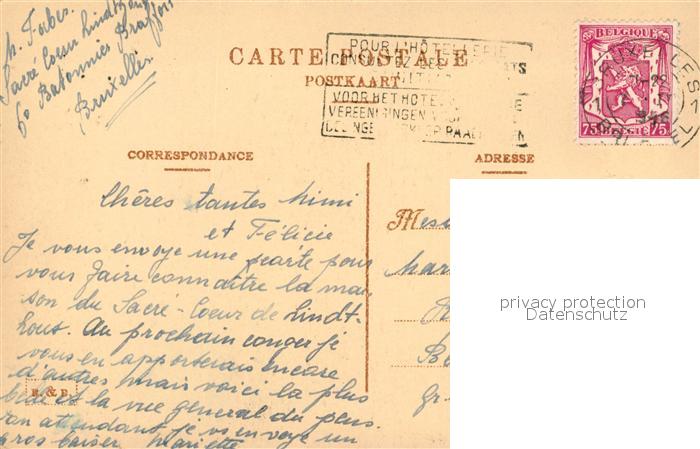 M. Faber
Sacré Coeur Lindthout
60 Batonnier Braffort
Bruxelles
CARTE POSTALE
POSTKAART
POUR L'HÔTELLERIE
VOOR HET
VEREENIGINGEN
BELGIQUE
75 BELGIE 75
BRUXELLES
CORRESPONDANCE
ADRESSE
Chères tantes Mimi
et Félicie
Je vous envoye une carte pour
vous faire connaître la mai
son du Sacré-Coeur de Lindt-
hout. Au prochain conger je
vous en apporterais encore
d'autres mais voici la plus
belle est la vue general du pens.
en attendant je vs envoye un
gros baiser Mariette
Mess
Mar
Be
Gr-
E. & B.
privacy protection
Datenschutz